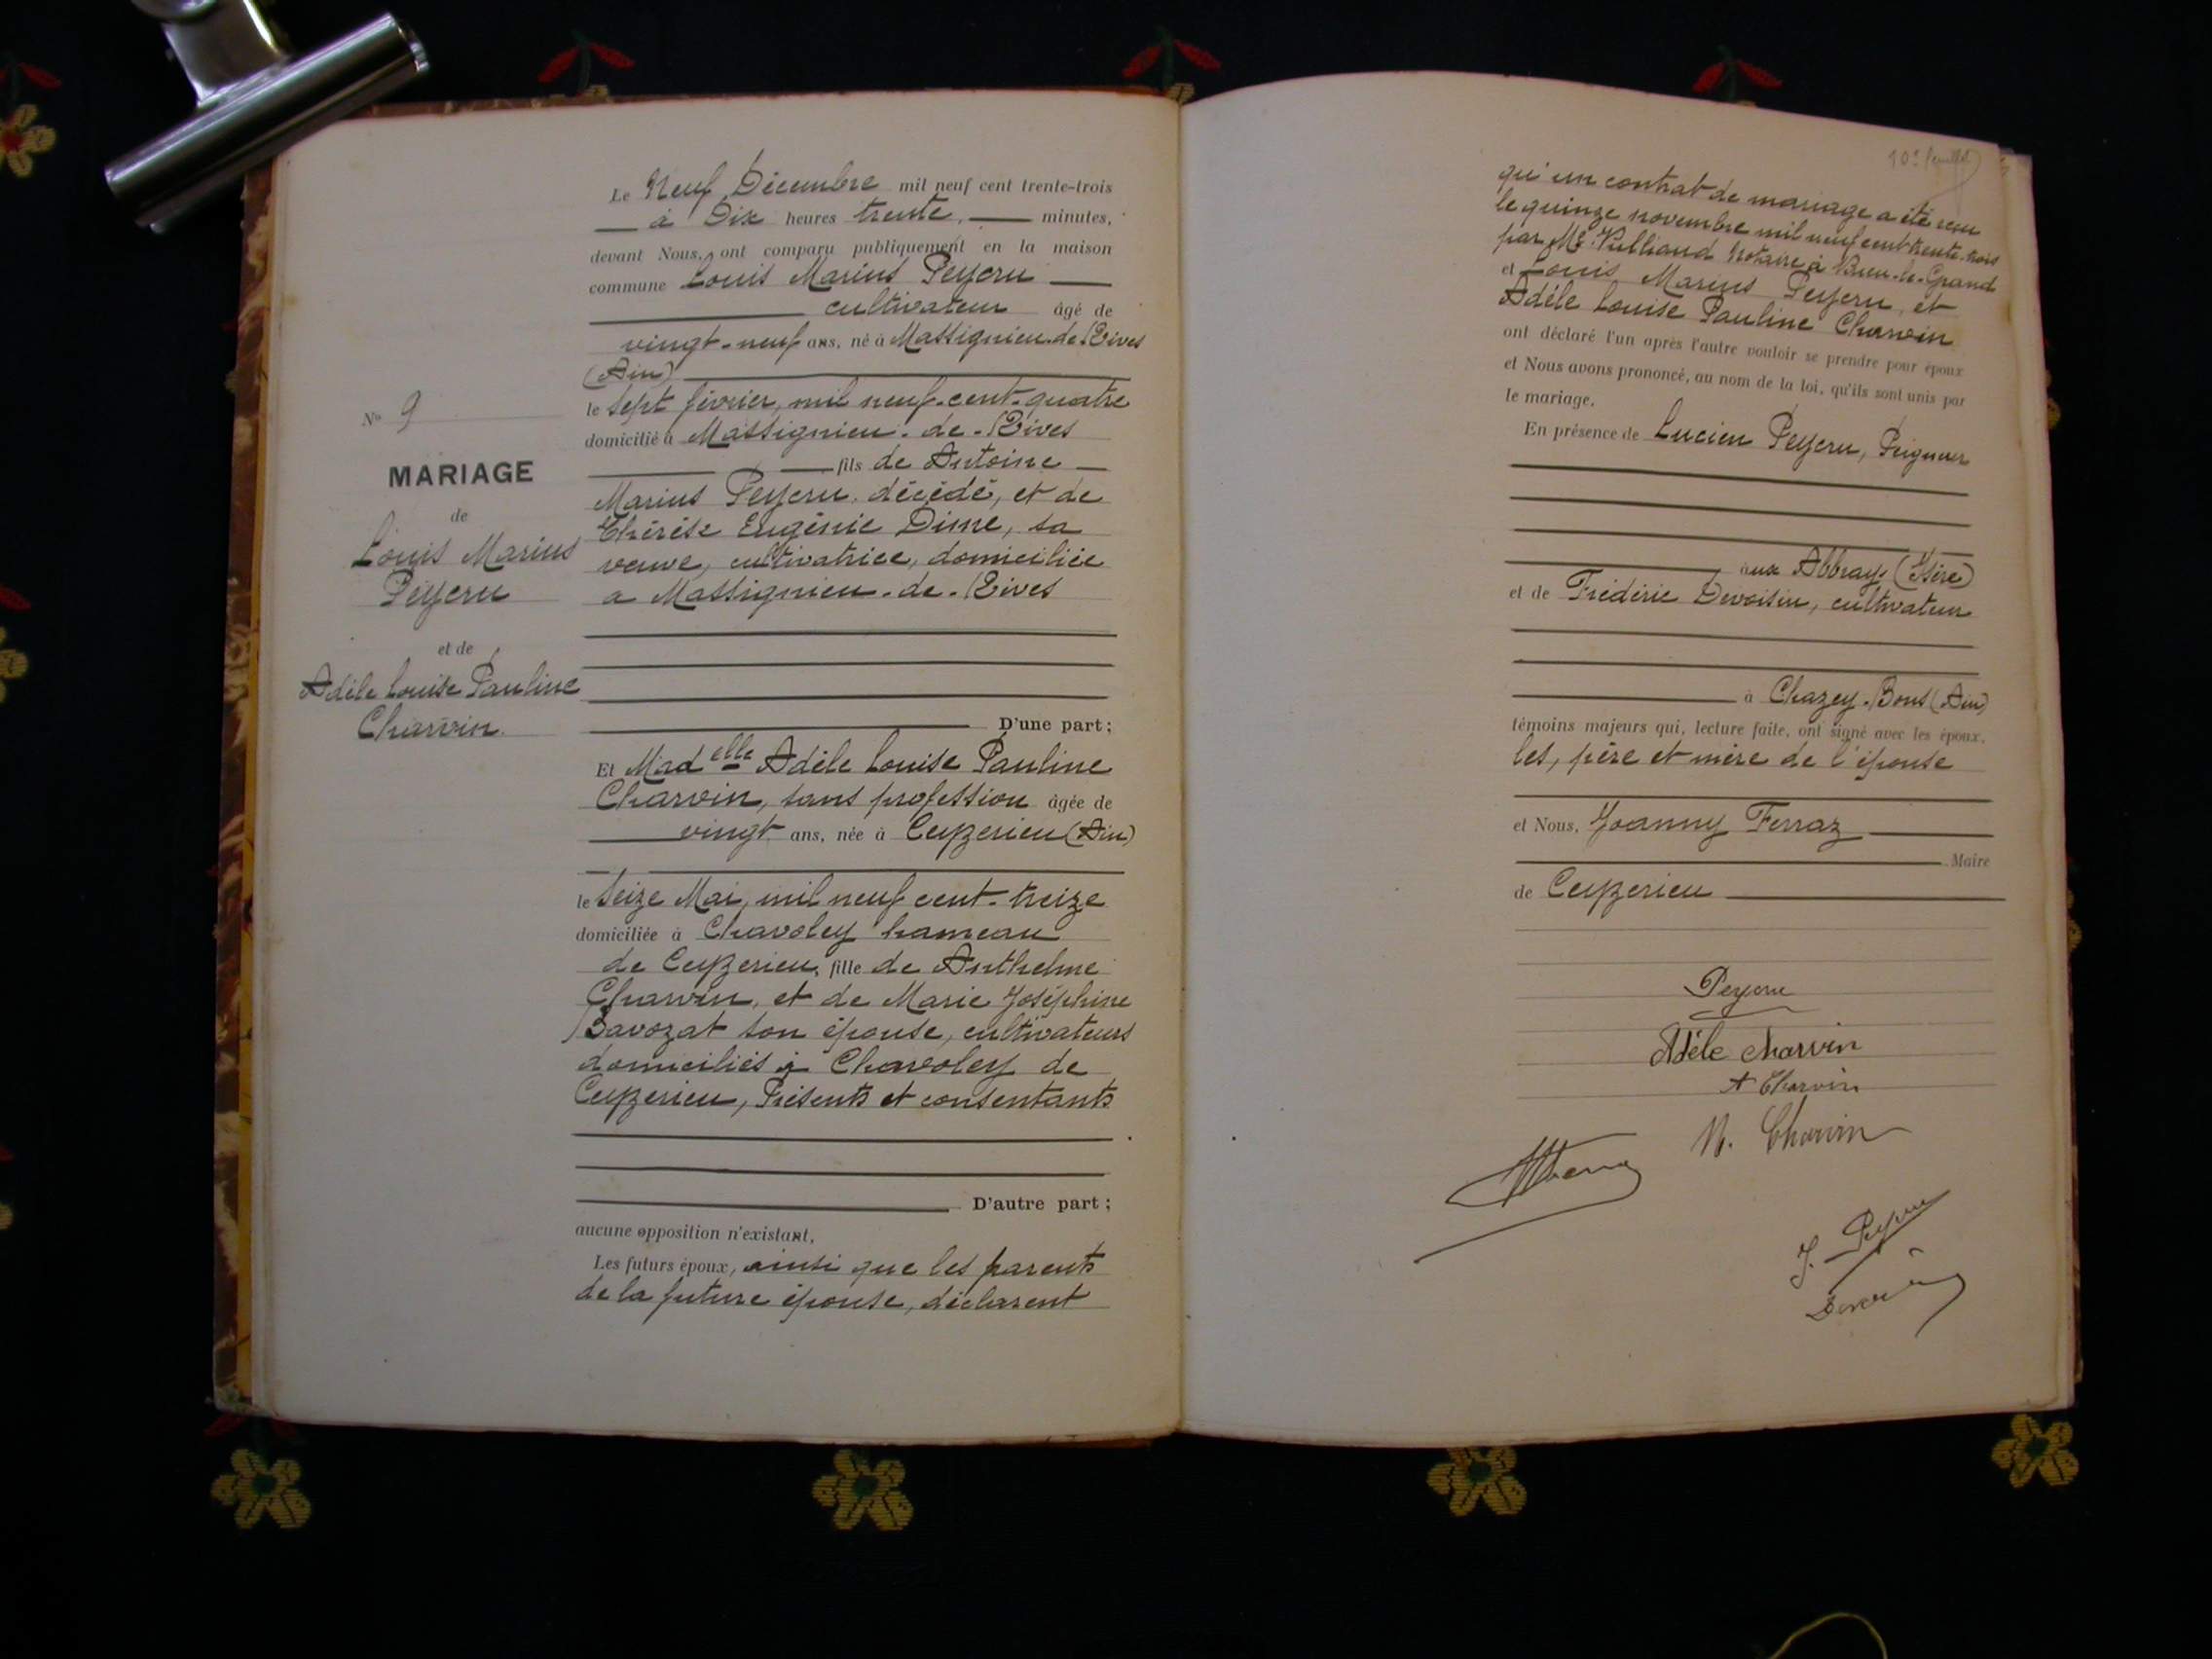 Le Neuf Décembre mil neuf cent trente-trois
à Dix heures trente minutes,
devant Nous, ont comparu publiquement en la maison
commune Louis Marius Peyeru
cultivateur âgé de
vingt-neuf ans, né à Massignieu-de-Rives
(Ain)
le sept février, mil neuf-cent-quatre
domicilié à Massignieu-de-Rives
fils de Antoine
Marius Peyeru, décédé, et de
Thérèse Eugénie Dime, sa
veuve, cultivatrice, domiciliée
a Massignieu-de-Rives
D'une part;
Et Madelle Adèle Louise Pauline
Charvin, sans profession âgée de
vingt ans, née à Ceyzerieu (Ain)
le seize Mai, mil neuf cent-treize
domiciliée à Chavoley hameau
de Ceyzerieu, fille de Anthelme
Charvin, et de Marie Joséphine
Bavozat son épouse, cultivateurs
domiciliés à Chavoley de
Ceyzerieu, Présents et consentants
D'autre part;
aucune opposition n'existant,
Les futurs époux, ainsi que les parents
de la future épouse, déclarent
No 9
MARIAGE
de
Louis Marius
Peyeru
et de
Adèle Louise Pauline
Charvin.
10e feuillet
qu'un contrat de mariage a été reçu
le quinze novembre mil neuf cent trente-trois
par Me Vulliand Notaire à Virieu-le-Grand
et Louis Marius Peyeru, et
Adèle Louise Pauline Charvin
ont déclaré l'un après l'autre vouloir se prendre pour époux
et Nous avons prononcé, au nom de la loi, qu'ils sont unis par
le mariage.
En présence de Lucien Peyeru, Peigneur
aux Abbrays (Isère)
et de Frédéric Devoisin, cultivateur
à Chazey-Bons (Ain)
témoins majeurs qui, lecture faite, ont signé avec les époux,
les, père et mère de l'épouse
et Nous, Joanny Ferraz
Maire
de Ceyzerieu
Peyeru
Adèle Charvin
A Charvin
M. Charvin
J. Peyeru